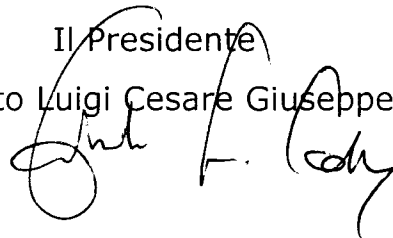 Il Presidente
to Luigi Cesare Giuseppe